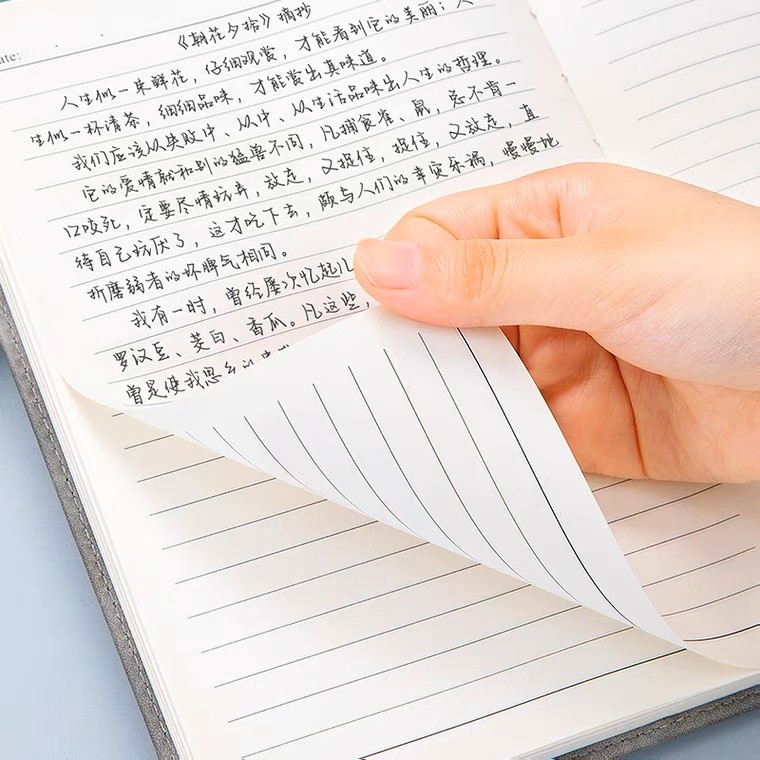 ate: . .
《朝花夕拾》摘抄
人生似一束鲜花，仔细观赏，才能看到它的美丽；人
生似一杯清茶，细细品味，才能赏出真味道。
我们应该从失败中、从中、从生活品味出人生的哲理。
它的爱情就和别的猛兽不同，凡捕食雀、鼠，总不肯一
口咬死，定要尽情玩弄，放走，又捉住，捉住，又放走，直
待自己玩厌了，这才吃下去，颇与人们的幸灾乐祸，慢慢地
折磨弱者的坏脾气相同。
我有一时，曾经屡次忆起儿
罗汉豆、茭白、香瓜。凡这些，
曾是使我思乡的